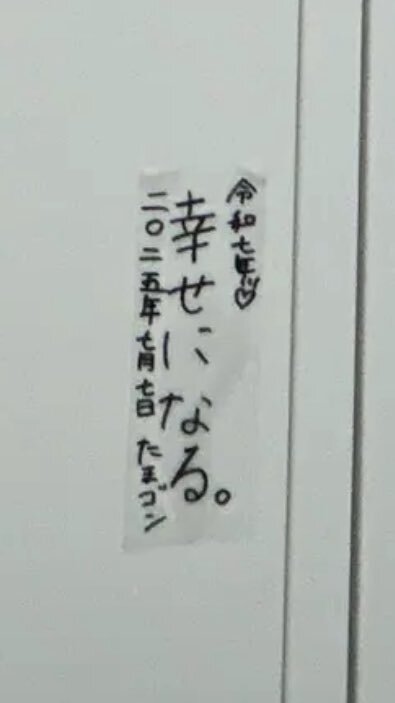 令和七年♡
幸せになる。
二〇二五年七月七日 たまゴン